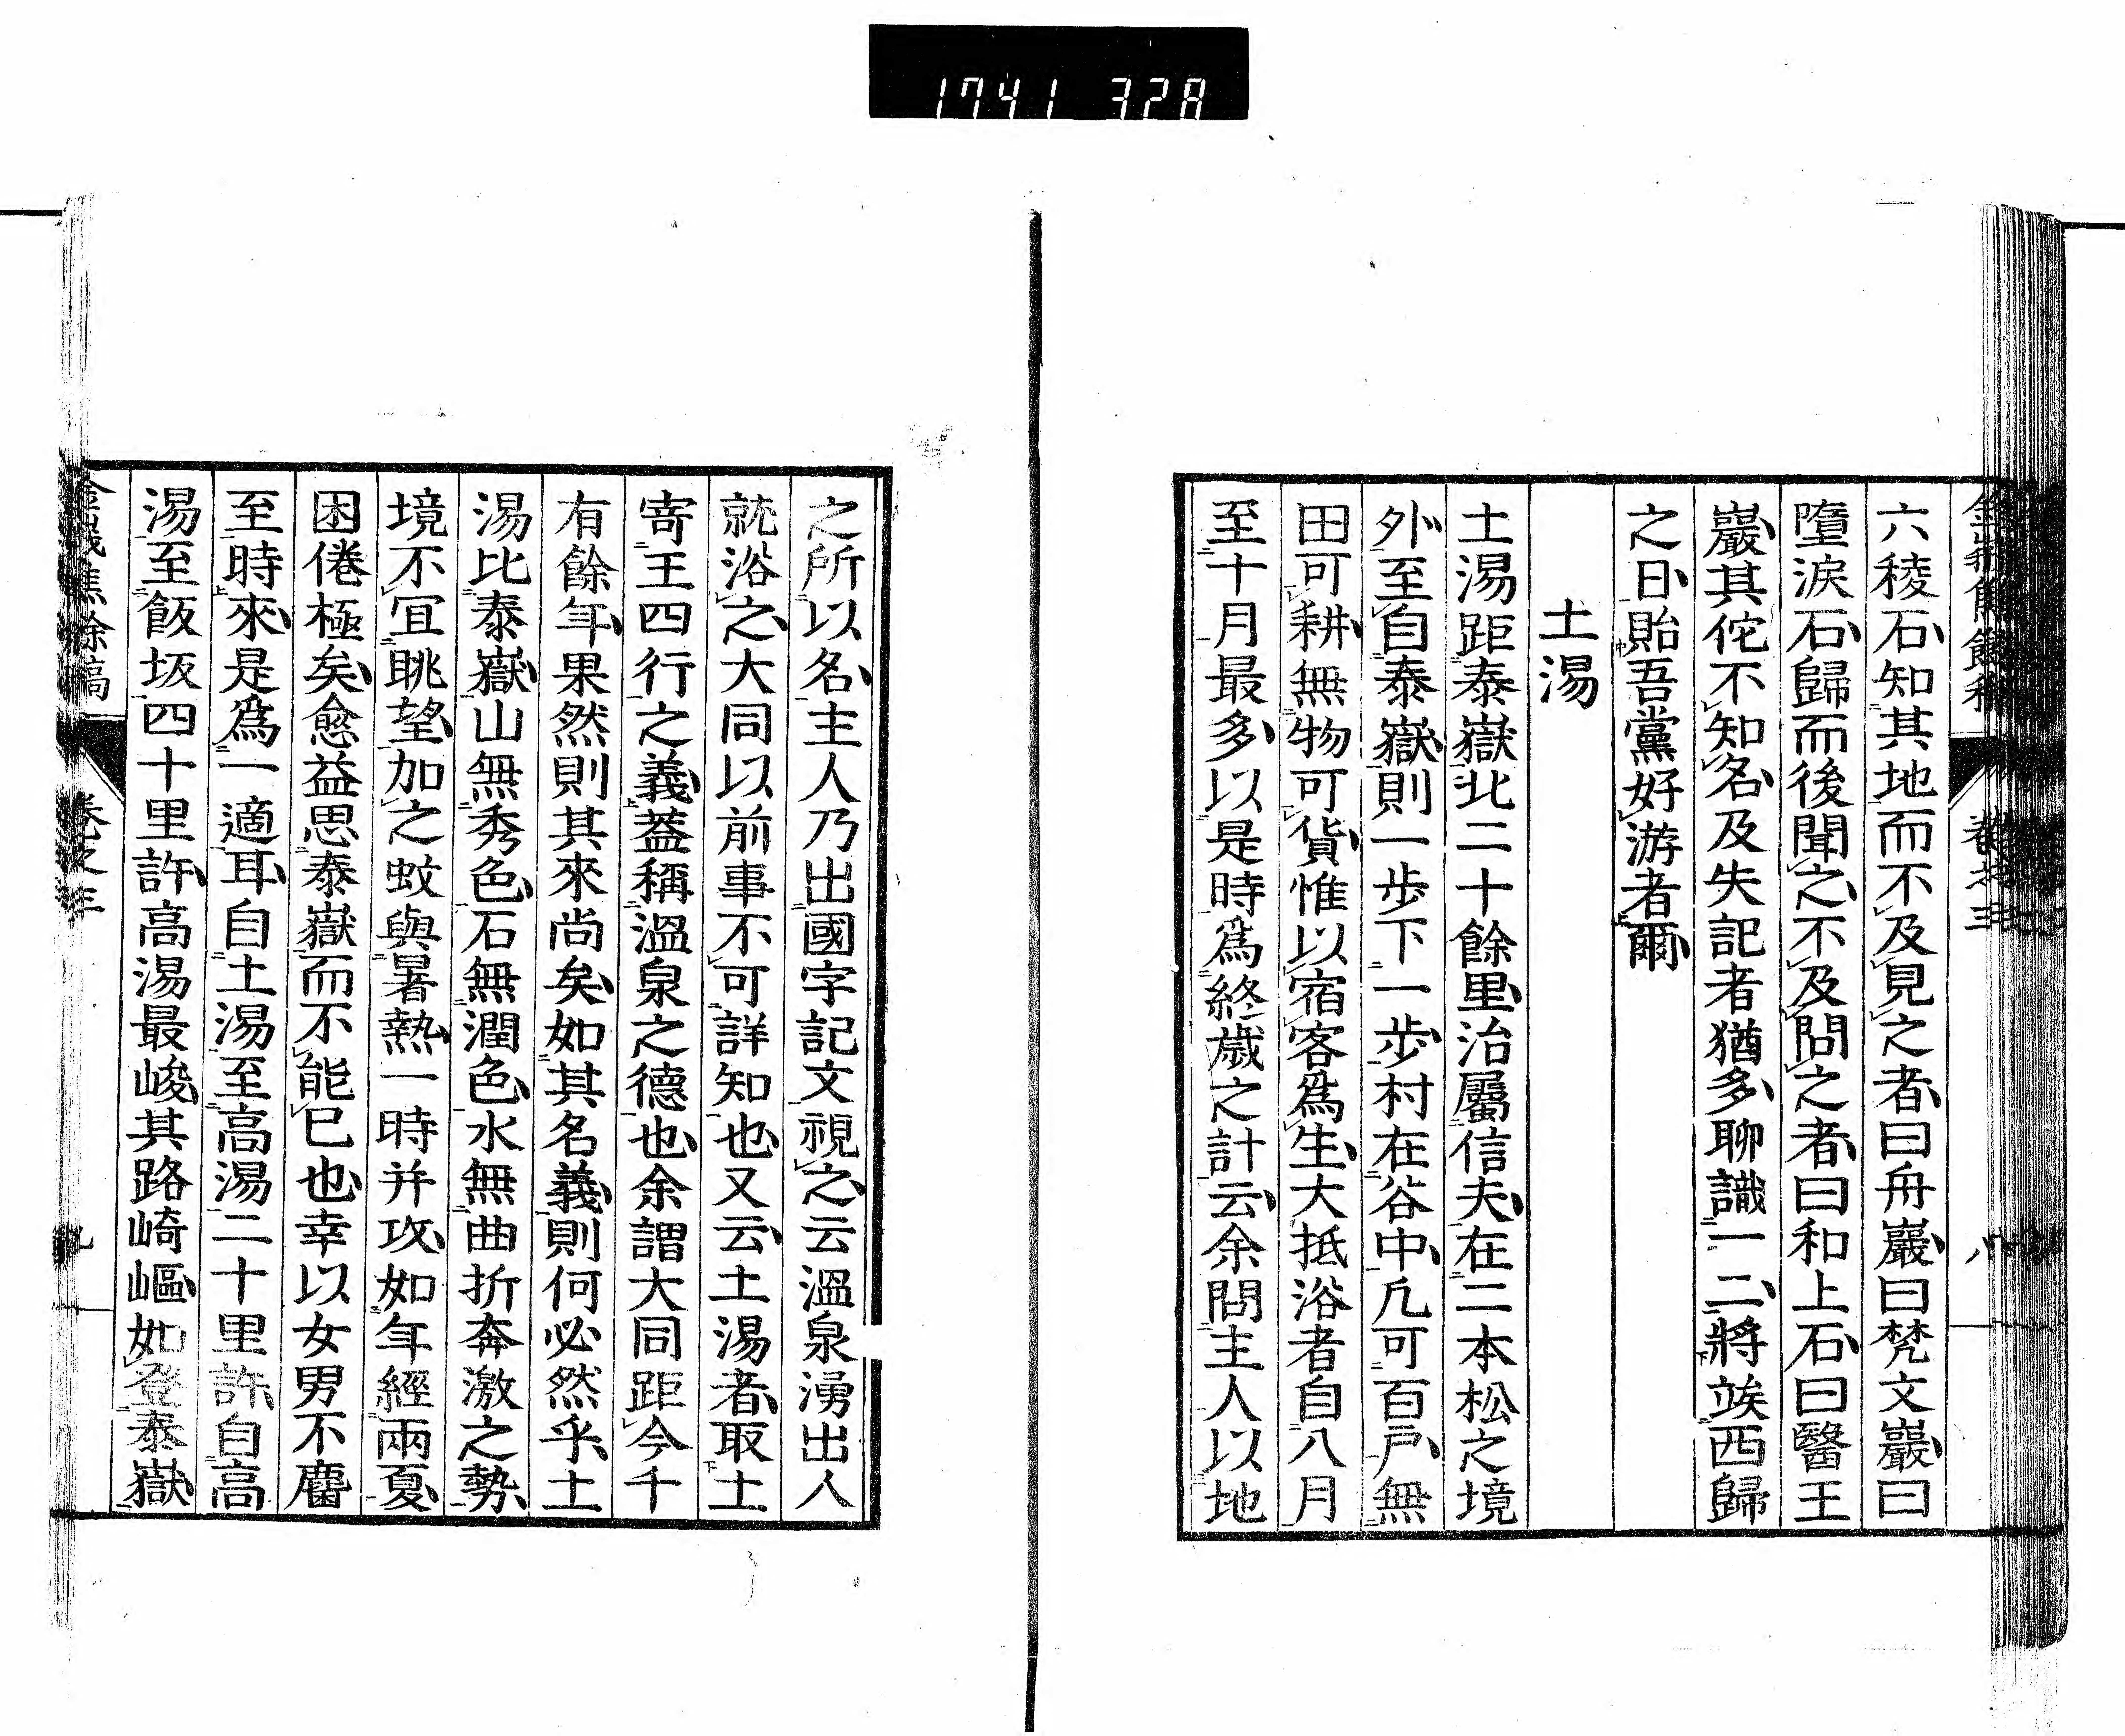 1741 328
六稜石知其地而不及見之者曰舟巖曰梵文巖曰
墮淚石歸而後聞之不及問之者曰和上石曰醫王
巖其佗不知名及失記者猶多聊識一二將竢西歸
之日貽吾黨好游者爾
土湯
土湯距泰嶽北二十餘里治屬信夫在二本松之境
外至自泰嶽則一步下一步村在谷中凢可百戶無
田可耕無物可貨惟以宿客爲生大抵浴者自八月
至十月最多以是時爲終歲之計云余問主人以地
之所以名主人乃出國字記文視之云溫泉湧出人
就浴之大同以前事不可詳知也又云土湯者取土
寄王四行之義葢稱溫泉之德也余謂大同距今千
有餘年果然則其來尚矣如其名義則何必然乎土
湯比泰嶽山無秀色石無潤色水無曲折奔激之勢
境不宜眺望加之蚊與暑熱一時并攻如年經兩夏
困倦極矣愈益思泰嶽而不能已也幸以女男不麕
至時來是爲一適耳自土湯至高湯二十里許自高
湯至飯坂四十里許高湯最峻其路崎嶇如登泰嶽
卷之三